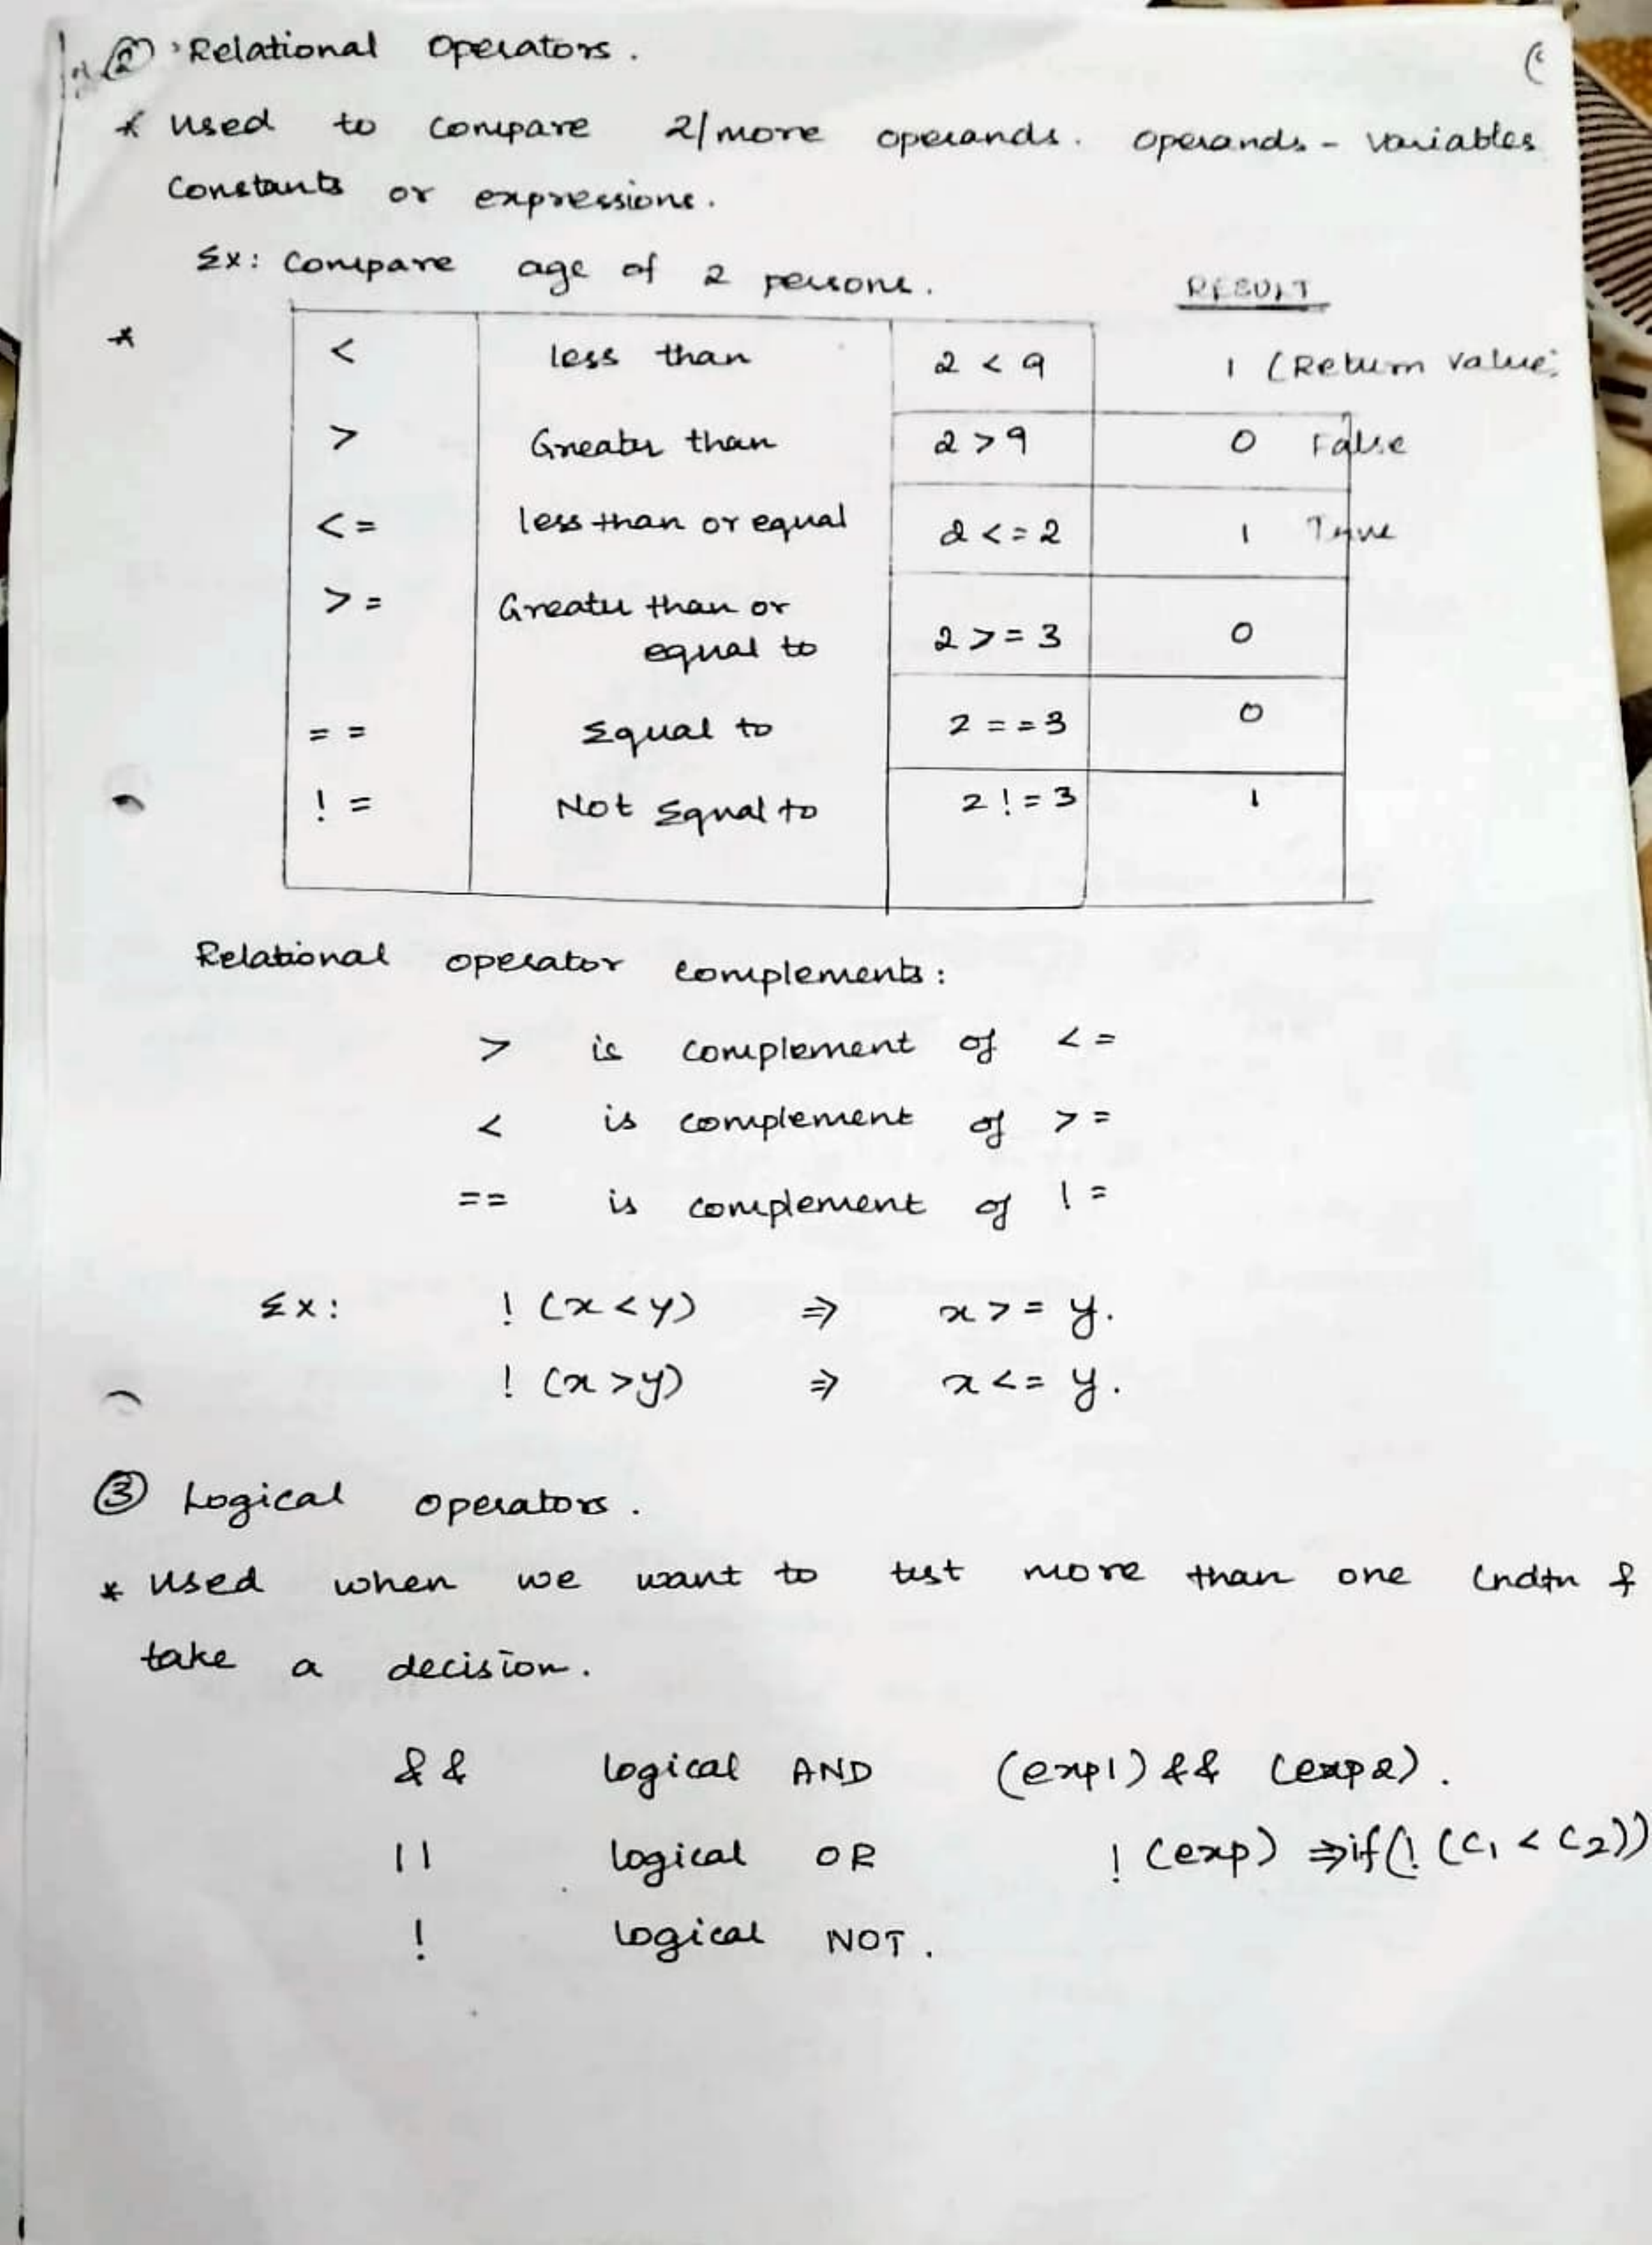 ② Relational Operators.
* Used to compare 2/more operands. Operands - Variables
Constants or expressions.
Ex: Compare age of 2 persons.
RESULT
* < less than 2 < 9 1 (Return value
> Greater than 2 > 9 0 False
<= less than or equal 2 <= 2 1 True
>= Greater than or
equal to 2 >= 3 0
== Equal to 2 == 3 0
!= Not Equal to 2 != 3 1
Relational operator complements:
> is complement of <=
< is complement of >=
== is complement of !=
Ex: !(x<y) ⇒ x >= y.
!(x>y) ⇒ x <= y.
③ Logical operators.
* Used when we want to test more than one Cndtn &
take a decision.
&& logical AND (exp1) && (exp2).
|| logical OR !(exp) ⇒ if(!(C1 < C2))
! logical NOT.